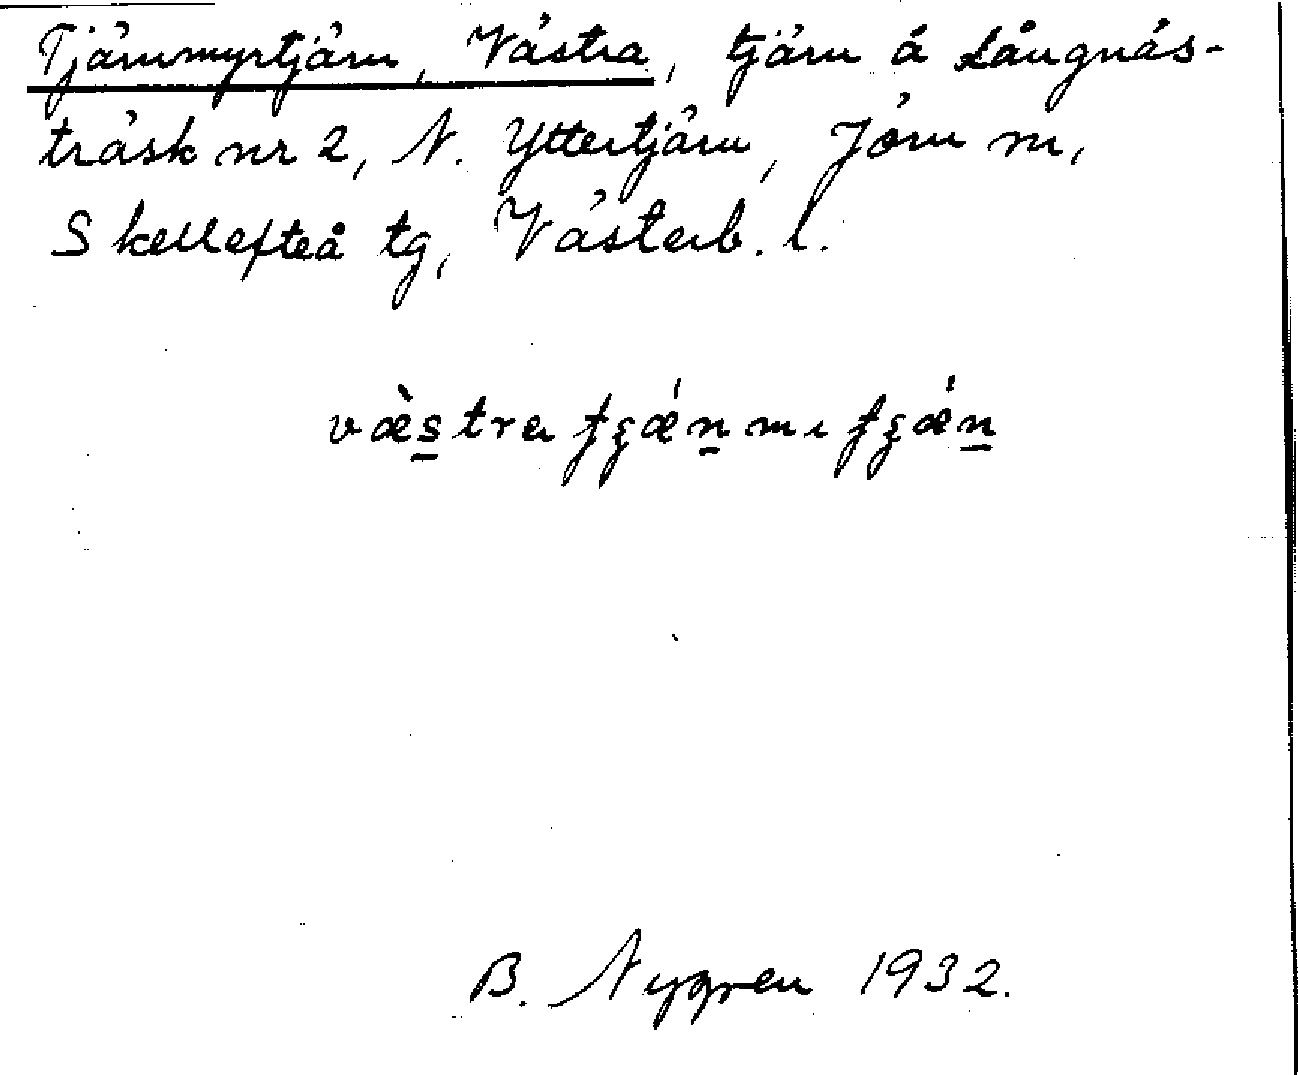 Tjärnmyrtjärn, Västra, tjärn å Långnäs-
träsk nr 2, N. Yttertjärn, Jörn sn,
Skellefteå tg, Västerb. l.
væ̀s̲tra tʒǽn̲mɩ tʒǽn̲
B. Nygren 1932.